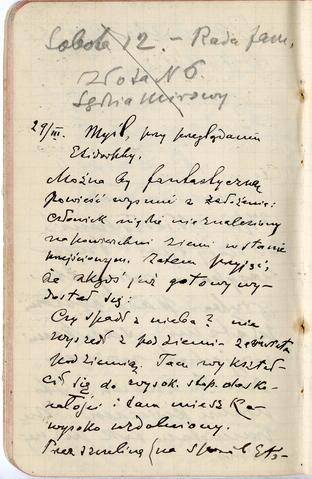 Sobota 12. – Rada fam.
Złota N 6.
Sędzia Mirowy
29/III. Myśl, przy przeglądaniu
Etidorhpy.
Można by fantastyczną
powieść wysnuć z założenia:
człowiek nigdy nie znaleziony
na powierzchni ziemi w stanie
przejściowym. Zatem przyjść,
że skądś już gotowy wy-
dostał się:
Czy spadł z nieba? nie
wyszedł z podziemi
podziemia. Tam wykształ-
cił się do wysok. stop. dosko-
nałości i tam mieszka
wysoko uzdolniony.
Przez szczelinę (na sposób Eti-